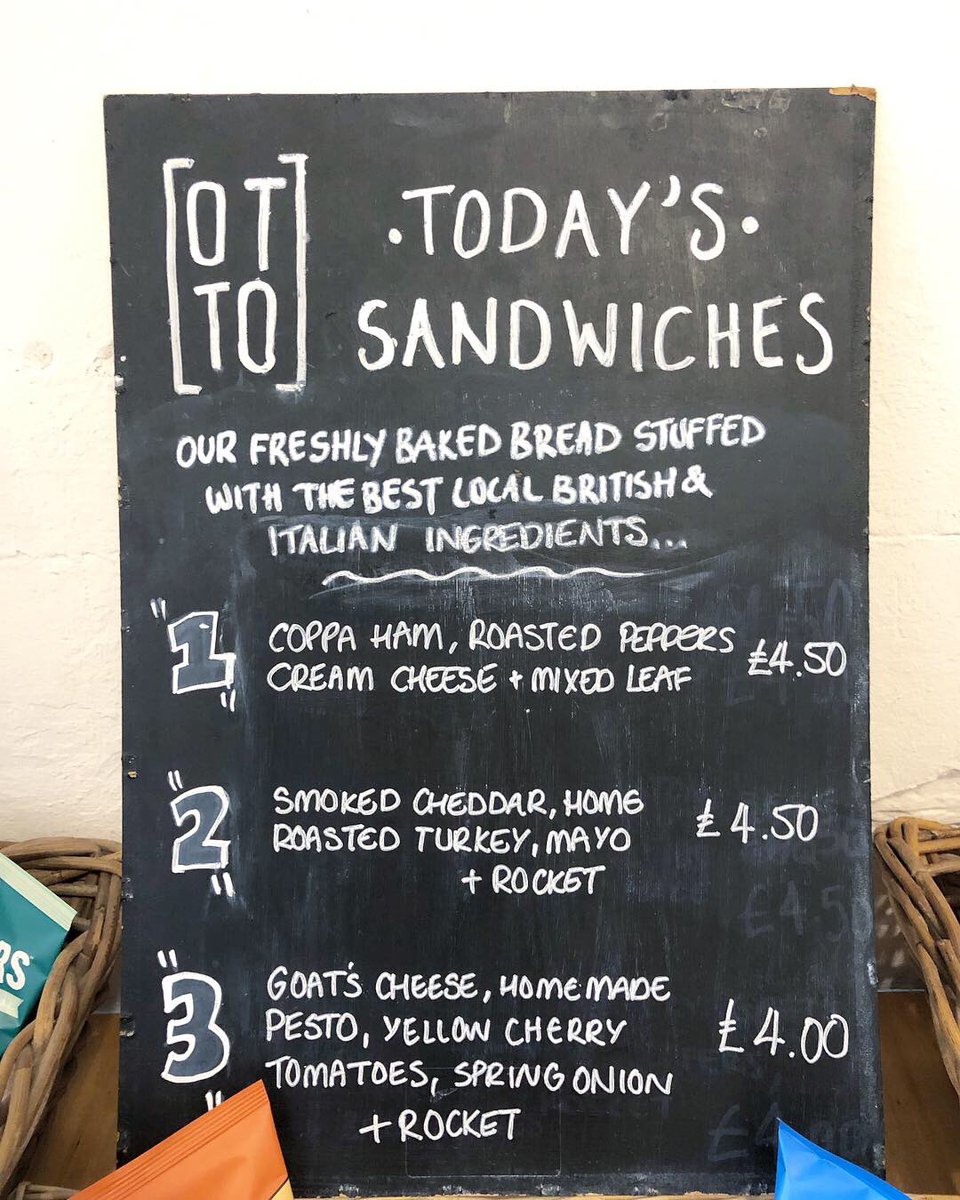 OT
TO
·TODAY'S·
SANDWICHES
OUR FRESHLY BAKED BREAD STUFFED
WITH THE BEST LOCAL BRITISH &
ITALIAN INGREDIENTS...
"1"
COPPA HAM, ROASTED PEPPERS
CREAM CHEESE + MIXED LEAF
£4.50
"2"
SMOKED CHEDDAR, HOME
ROASTED TURKEY, MAYO
+ ROCKET
£4.50
"3"
GOAT'S CHEESE, HOMEMADE
PESTO, YELLOW CHERRY
TOMATOES, SPRING ONION
+ ROCKET
£4.00